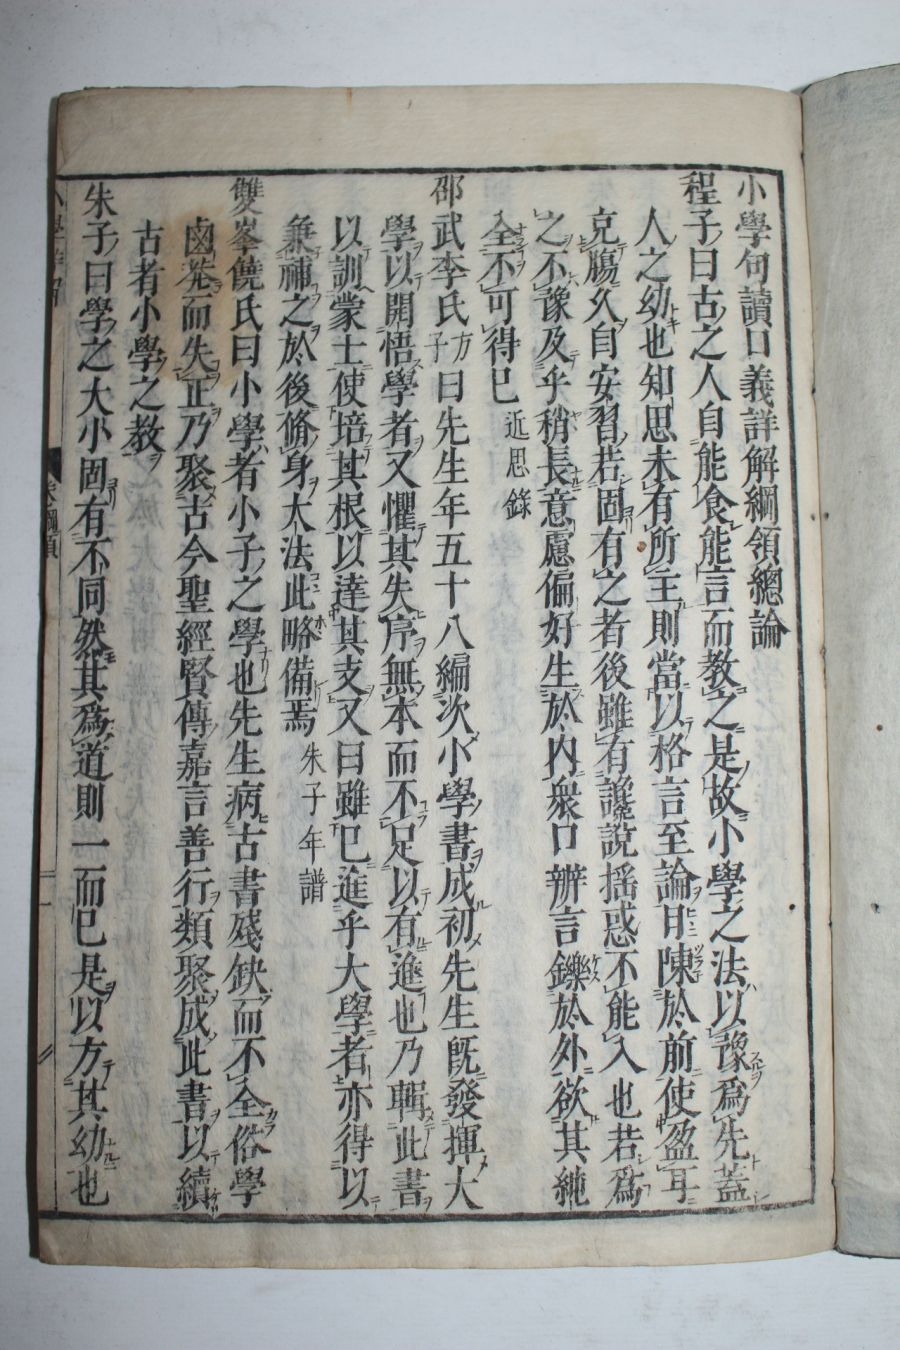 小學句讀口義詳解綱領總論
程子曰古之人自能食能言而教之是故小學之法以豫爲先蓋
人之幼也知思未有所主則當以格言至論日陳於前使盈耳
充膓久自安習若固有之者後雖有讒說揺惑不能入也若爲
之不豫及乎稍長意慮偏好生於内衆口辨言鑠於外欲其純
全不可得巳 近思錄
邵武李氏方子曰先生年五十八編次小學書成初先生旣發揮大
學以開悟學者又懼其失序無本而不足以有進也乃輯此書
以訓蒙士使培其根以達其支又曰雖巳進乎大學者亦得以
兼補之於後脩身大法此略備焉 朱子年譜
雙峯饒氏曰小學者小子之學也先生病古書殘缺而不全俗學
鹵莽而失正乃聚古今聖經賢傳嘉言善行類聚成此書以續
古者小學之教
朱子曰學之大小固有不同然其爲道則一而巳是以方其幼也